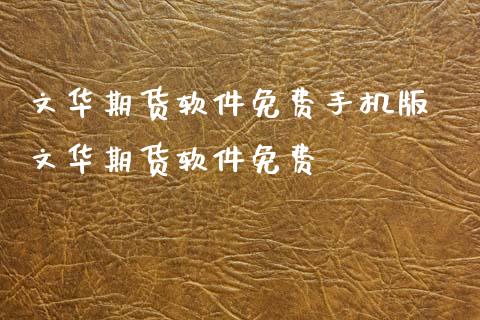 文华期货软件免费手机版
文华期货软件免费